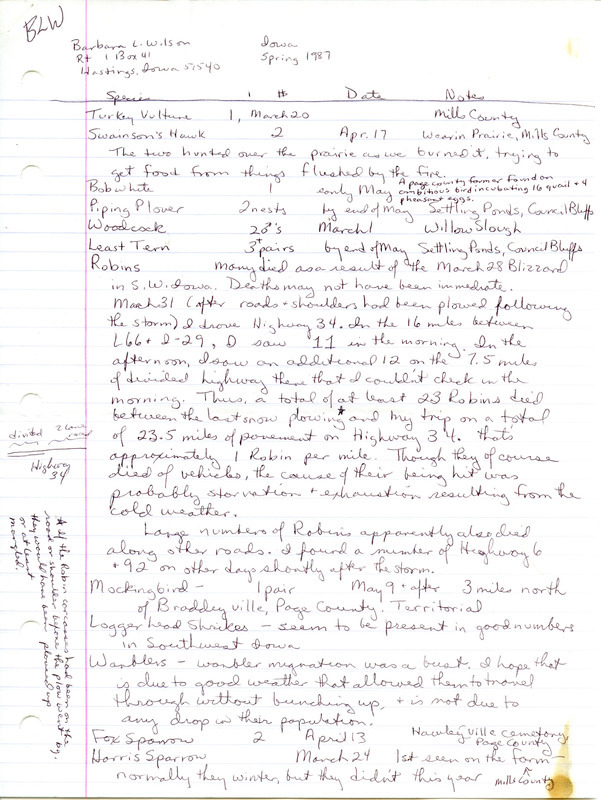 BLW
Barbara L. Wilson Iowa
Rt 1 Box 41 Spring 1987
Hastings, Iowa 51540
Species # Date Notes
Turkey Vulture 1, March 20 Mills County
Swainson's Hawk 2 Apr. 17 Wearin Prairie, Mills County
The two hunted over the prairie as we burned it, trying to
get food from things flushed by the fire.
Bobwhite 1 early May A page county farmer found an
ambitious bird incubating 16 quail + 4
pheasant eggs.
Piping Plover 2 nests by end of May Settling Ponds, Council Bluffs
Woodcock 2♂'s March 1 Willow Slough
Least Tern 3+ pairs by end of May Settling Ponds, Council Bluffs
Robins many died as a result of the March 28 Blizzard
in S.W. Iowa. Deaths may not have been immediate.
March 31 (after roads + shoulders had been plowed following
the storm) I drove Highway 34. In the 16 miles between
L66 + I-29, I saw 11 in the morning. In the
afternoon, I saw an additional 12 on the 7.5 miles
of divided highway there that I couldn't check in the
morning. Thus, a total of at least 23 Robins died
between the last snow plowing* and my trip on a total
of 23.5 miles of pavement on Highway 34. thats
approximately 1 Robin per mile. Though they of course
died of vehicles, the cause of their being hit was
probably starvation + exhaustion resulting from the
cold weather.
Large numbers of Robins apparently also died
along other roads. I found a number of Highway 6
+ 92 on other days shortly after the storm.
Mockingbird - 1 pair May 9 + after 3 miles north
of Braddyville, Page County. Territorial
Loggerhead Shrikes - seem to be present in good numbers
in Southwest Iowa
Warblers - warbler migration was a bust. I hope that
is due to good weather that allowed them to travel
through without bunching up, + is not due to
any drop in their population.
Fox Sparrow 2 April 13 Hawleyville cemetery,
Page County
Harris Sparrow March 24 1st seen on the farm -
normally they winter, but they didn't this year Mills County
divided 2 lane
Highway
34
* If the Robin carcasses had been on the
road or shoulder before the plow went by,
they would have been plowed up
or at least
mangled.